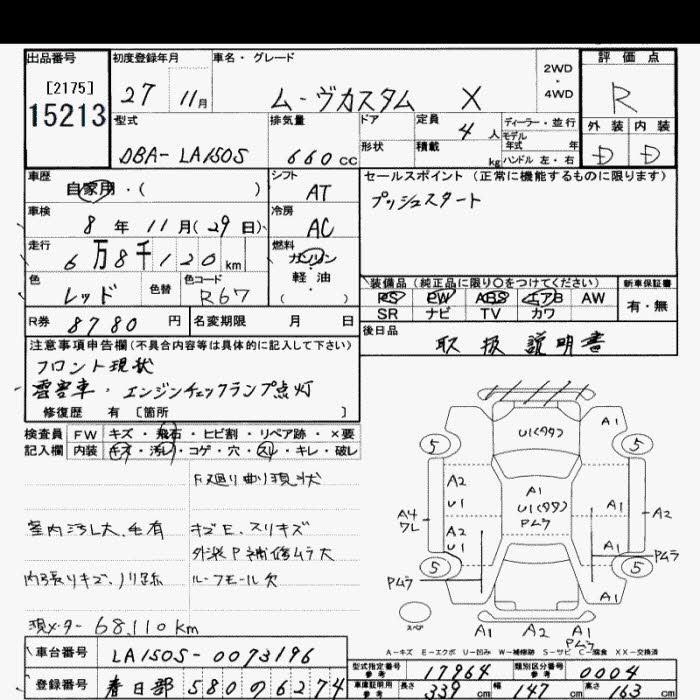 出品番号
[2175]
15213
初度登録年月
27 11月
車名・グレード
ムーヴカスタム X
2WD
・
4WD
評価点
R
外装 内装
D D
型式
DBA-LA150S
排気量
660cc
ドア
形状
定員
4人
積載
kg
ディーラー・並行
モデル
年式 年
ハンドル 左・右
車歴
自家用・( )
シフト
AT
セールスポイント (正常に機能するものに限ります)
プッシュスタート
車検
8年11月(29日)
冷房
AC
走行
6万8千120km
燃料
ガソリン
・
軽油
( )
色
レッド
色替
色コード
R67
装備品 (純正品に限り○をつけてください)
PS PW ABS エアB AW
SR ナビ TV カワ
新車保証書
有・無
R券 8780円
名変期限 月 日
後日品
取扱説明書
注意事項申告欄 (不具合内容等は具体的に記入して下さい)
フロント現状
雹害車・エンジンチェックランプ点灯
修復歴 有 [箇所 ]
検査員
記入欄
FW キズ・飛石・ヒビ割・リペア跡・×要
内装 キズ・汚レ・コゲ・穴・スレ・キレ・破レ
F廻り曲り現状
室内汚レ大、毛有
キズE、スリキズ
外装P補修ムラ大
内張りキズ、ノリ跡
ルーフモール欠
現メーター 68,110km
U1(99)
A1
5
5
A2
U1
A1
U1(99)
Pムラ
A1
A4
ワレ
A2
A2
U1
A1
Pムラ
Pムラ
5
5
A1
スペア
A1
A2
A1
Pムラ
A-キズ E-エクボ U-凹み W-補修跡 S-サビ C-腐食 XX-交換済
車台番号
LA150S-0073196
登録番号
春日部 580 の 6274
型式指定番号
参考
17964
類別区分番号
参考
0004
車庫証明用
参考
長さ 339cm
幅 147cm
高さ 163cm